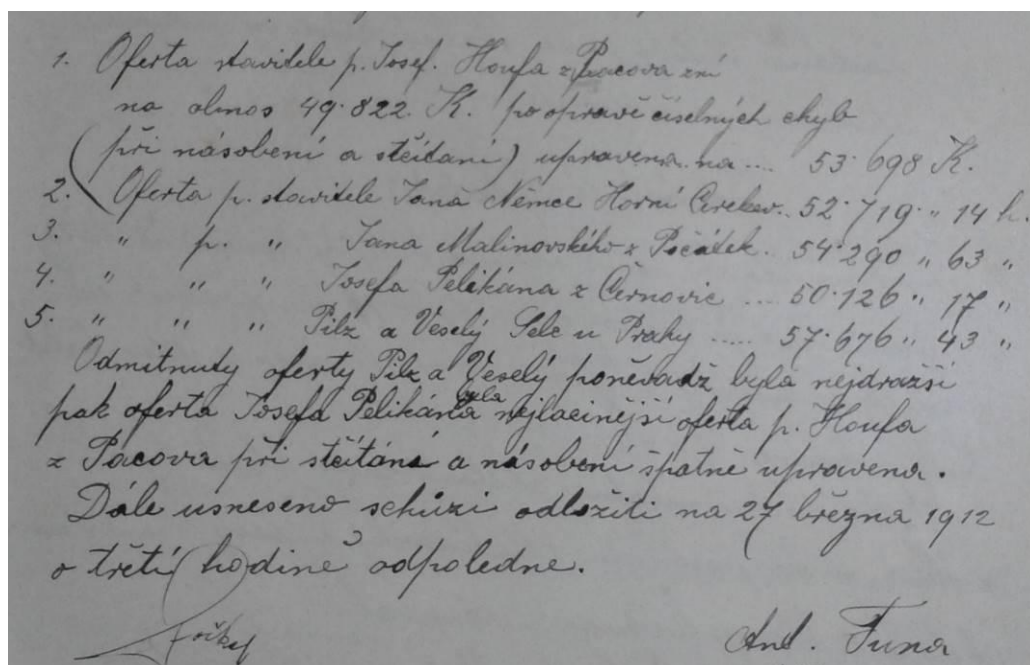 1. Oferta stavitele p. Josef. Houfa z Pacova zní
na obnos 49·822. K. po opravě číselných chyb
(při násobení a sčítaní) upravena na .... 53·698 K.
2. Oferta p. stavitele Jana Němce Horní Cerekev.. 52·719 „ 14 h.
3. „ p. „ Jana Malinovského z Počátek. 54·290 „ 63 „
4. „ „ „ Josefa Pelikána z Černovic .... 50·126 „ 17 „
5. „ „ „ Pilz a Veselý Selc u Prahy ..... 57·676 „ 43 „
Odmitnuty oferty Pilz a Veselý poněvadž byla nejdražší
pak oferta Josefa Pelikána byla nejlacinější oferta p. Houfa
z Pacova při sčítáná a násobení špatně upravena.
Dále usneseno schůzi odložiti na 27 března 1912
o třetí hodině odpoledne.
Ant. Tuna